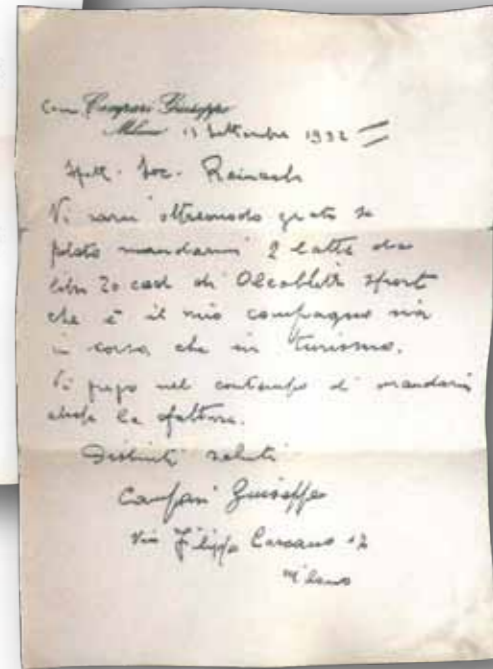 Cav. Campari Giuseppe
Milano 13 Settembre 1932
Spett. Soc. Reinach
Vi sarei oltremodo grato se
potete mandarmi 2 latte da
litri 20 cad. di Oleoblitz Sport
che è il mio compagno sia
in corsa che in turismo.
Vi prego nel contempo di mandarmi
la fattura.
Distinti saluti
Campari Giuseppe
Via Filippo Carcano 12
Milano